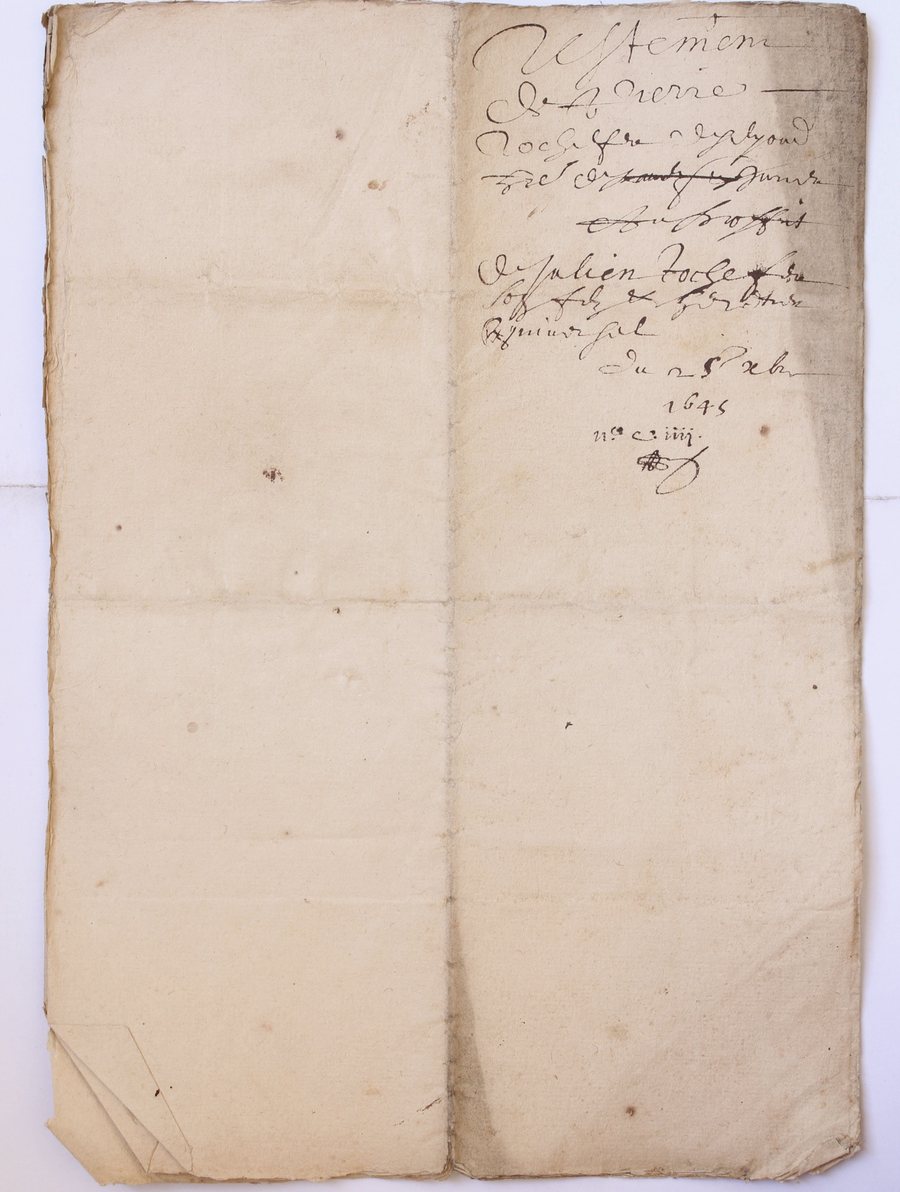 Testement
de Pierre
Rochefer
de
Au proffit
de Julien Rochefer
son filz & heritier
Universel
du 25e xbre
1645
no c. iiii.